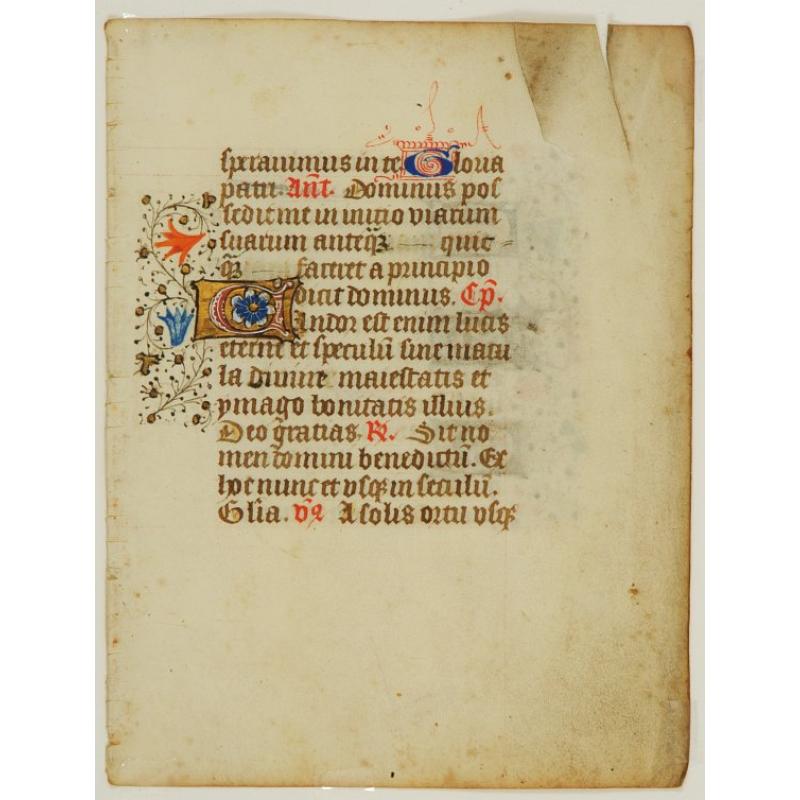 sperauimus in te. Gloria
patri. Añt. Dominus pos
sedit me in initio viarum
suarum anteq̄ quic⸗
q̄ faceret a principio
dicit dominus. Cp̄.
Candor est enim lucis
eterne et speculū sine macu
la diuine maiestatis et
ymago bonitatis illius.
Deo ḡratias. R̄. Sit no
men domini benedictū. Ex
hoc nunc et vsqȝ in seculū.
Glīa. v̄ꝰ A solis ortu vsqȝ